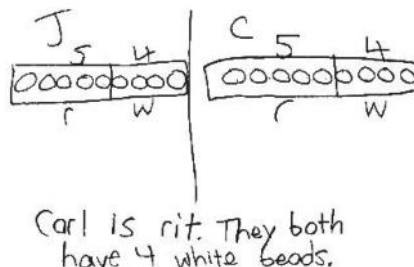 J
5 4
r w
C
5 4
r w
Carl is rit. They both
have 4 white beads.